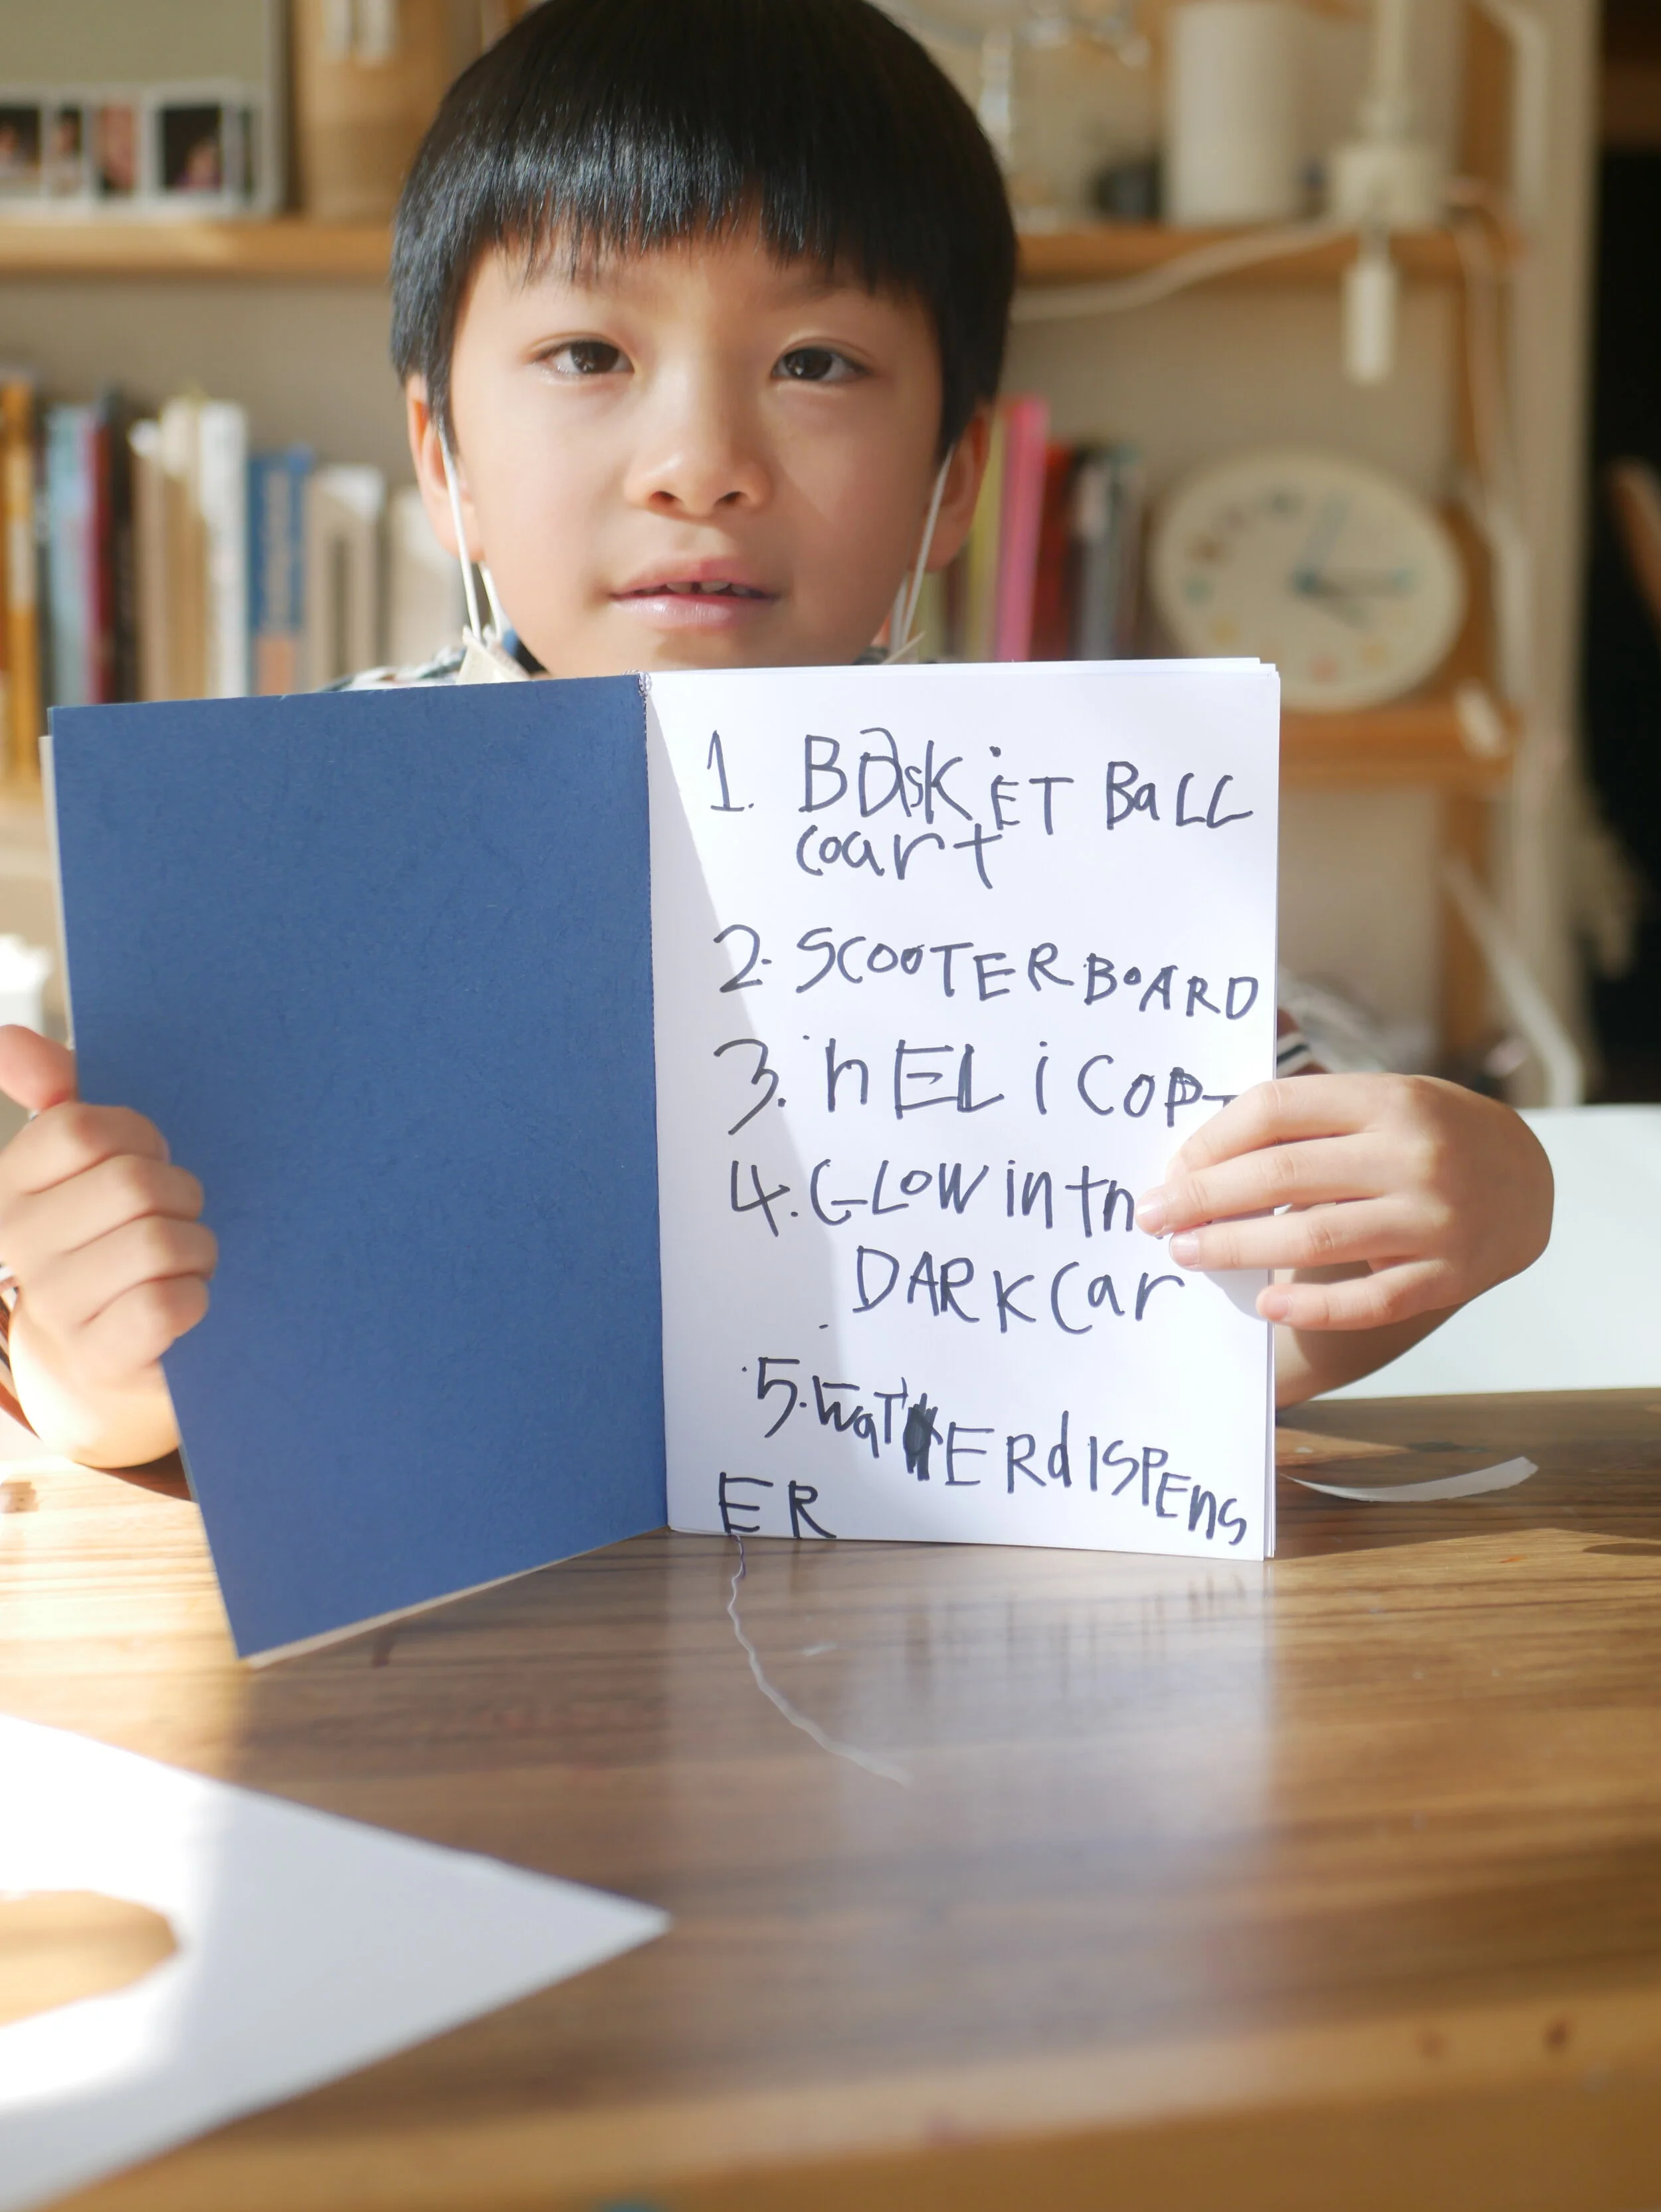 1. BasKET BaLL
coart
2. SCOOTERBOARD
3. hELiCOPT
4. GLOW in th
DARK Car
5. WaTERdISPEns
ER